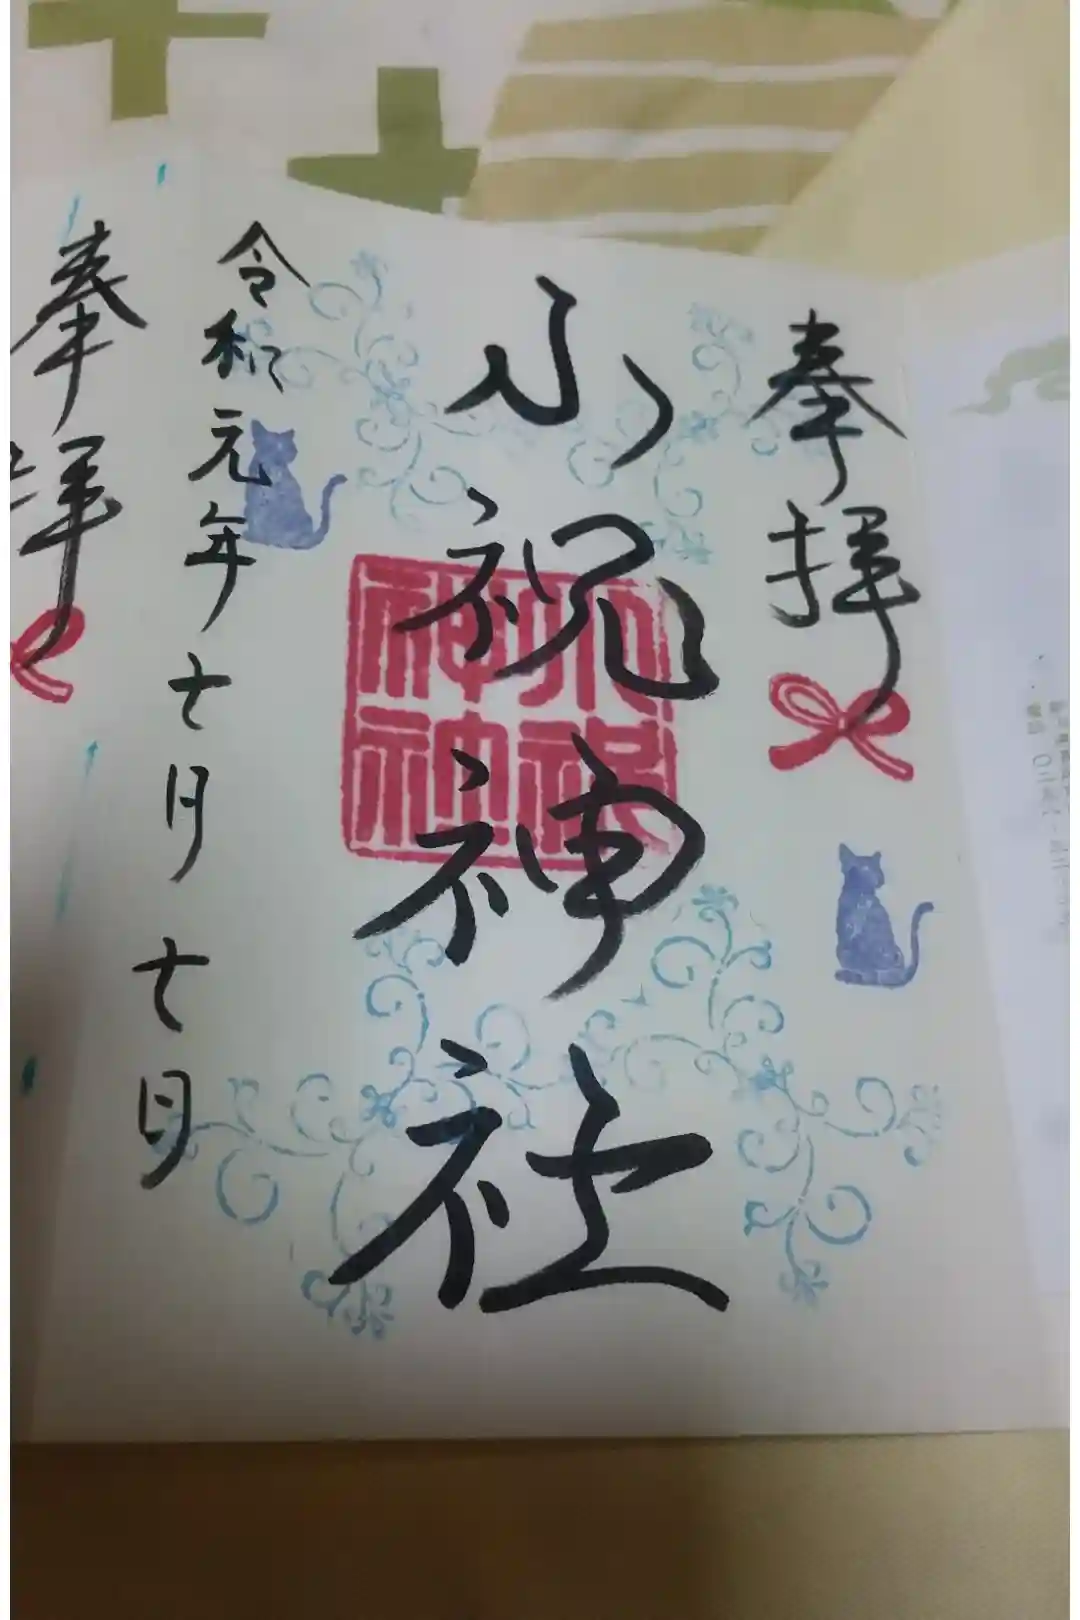 奉拝
小祝神社
小祝神社
令和元年七月七日
奉拝